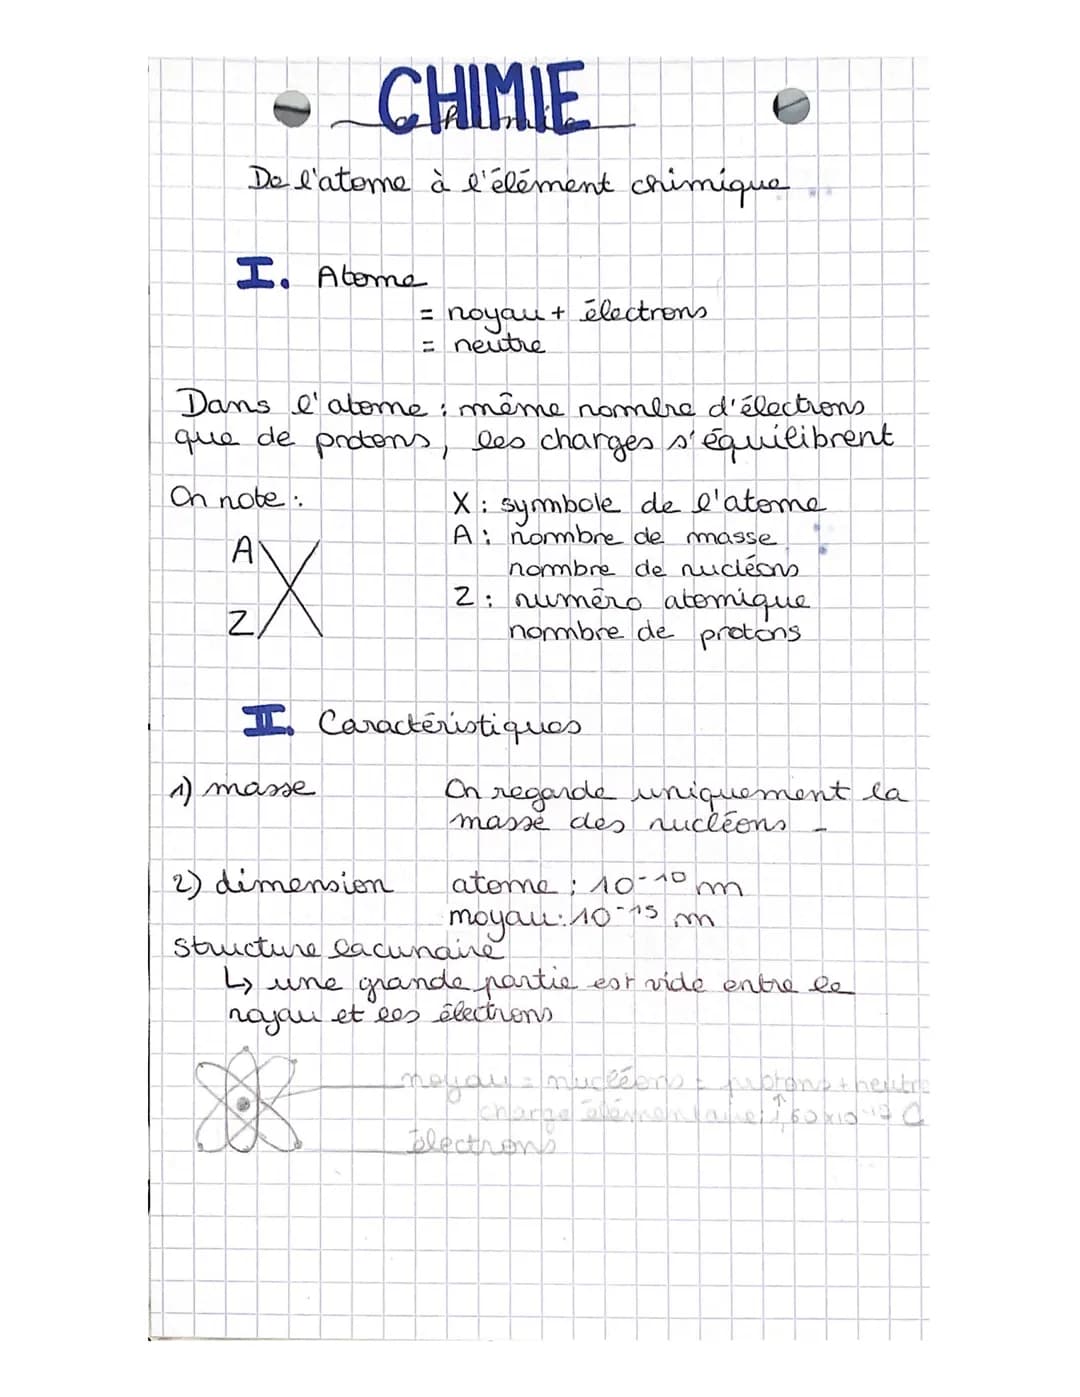 CHIMIE
De l'atome à l'élément chimique
I. Atome
= noyau + électrons
= neutre
Dans l'atome : même nombre d'électrons
que de protons, les charges s'équilibrent
On note :
A
X
Z
X : symbole de l'atome
A : nombre de masse
nombre de nucléons
Z : numéro atomique
nombre de protons
II. Caractéristiques
1) masse
On regarde uniquement la
masse des nucléons
2) dimension
atome : 10⁻¹⁰ m
noyau : 10⁻¹⁵ m
structure lacunaire
↳ une grande partie est vide entre le
noyau et les électrons
noyau = nucléons = protons + neutro
charge élémentaire : 1,60 x 10 C
électrons